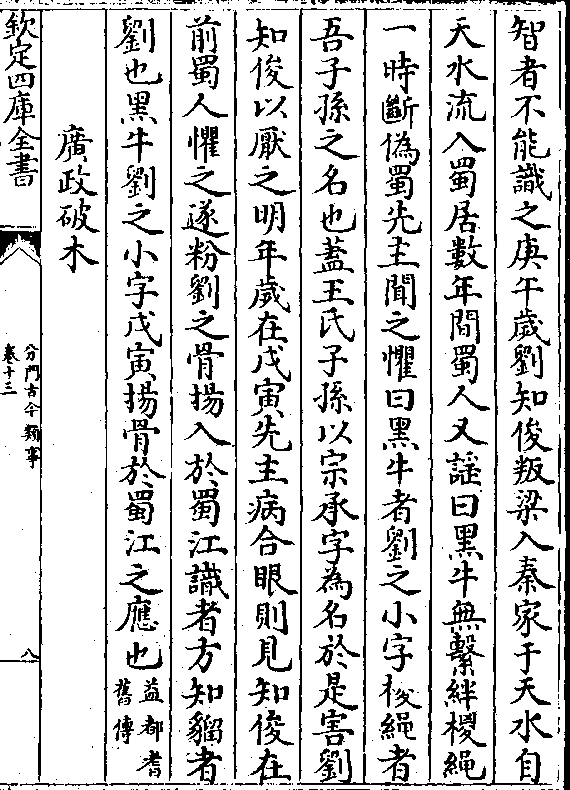 智者不能識之庚午歲劉知俊叛梁入秦家于天水自
天水流入蜀居數年間蜀人又謡曰黑牛無繫絆椶繩
一時斷偽蜀先主聞之懼曰黑牛者劉之小字椶繩者
吾子孫之名也蓋王氏子孫以宗承字為名於是害劉
知俊以厭之明年歲在戊寅先主病合眼則見知俊在
前蜀人懼之遂粉劉之骨揚入於蜀江識者方知貙者
劉也黑牛劉之小字戊寅揚骨於蜀江之應也益都耆
舊傳
廣政破木
欽定四庫全書
分門古今類事
卷十三
八